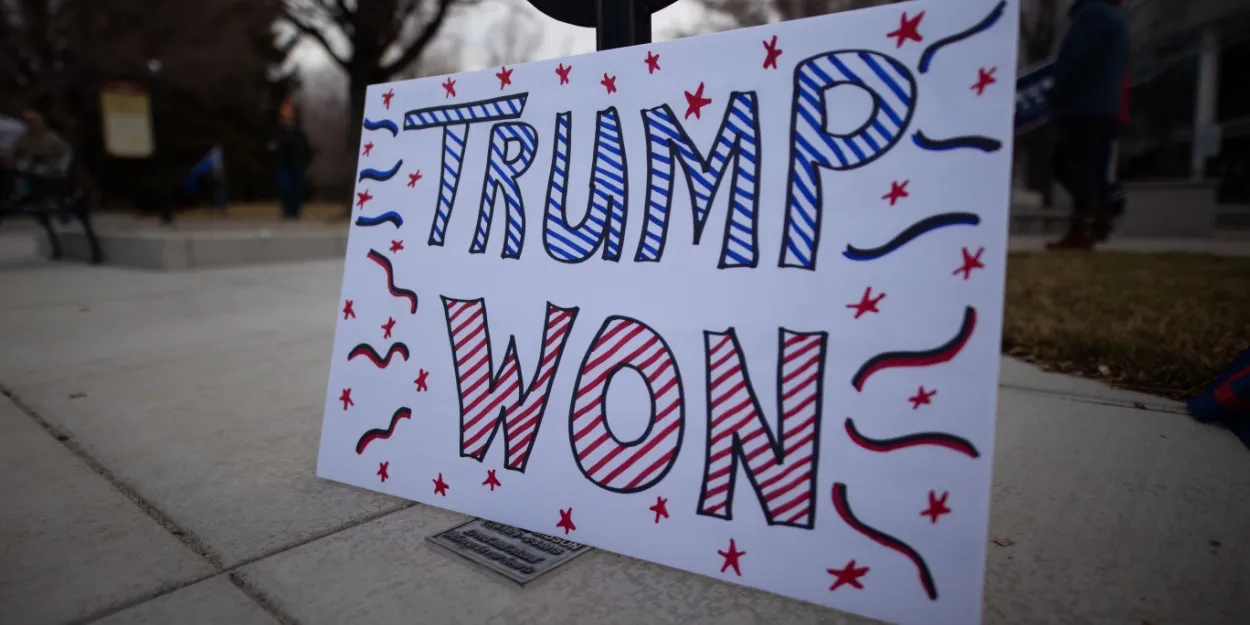 TRUMP
WON